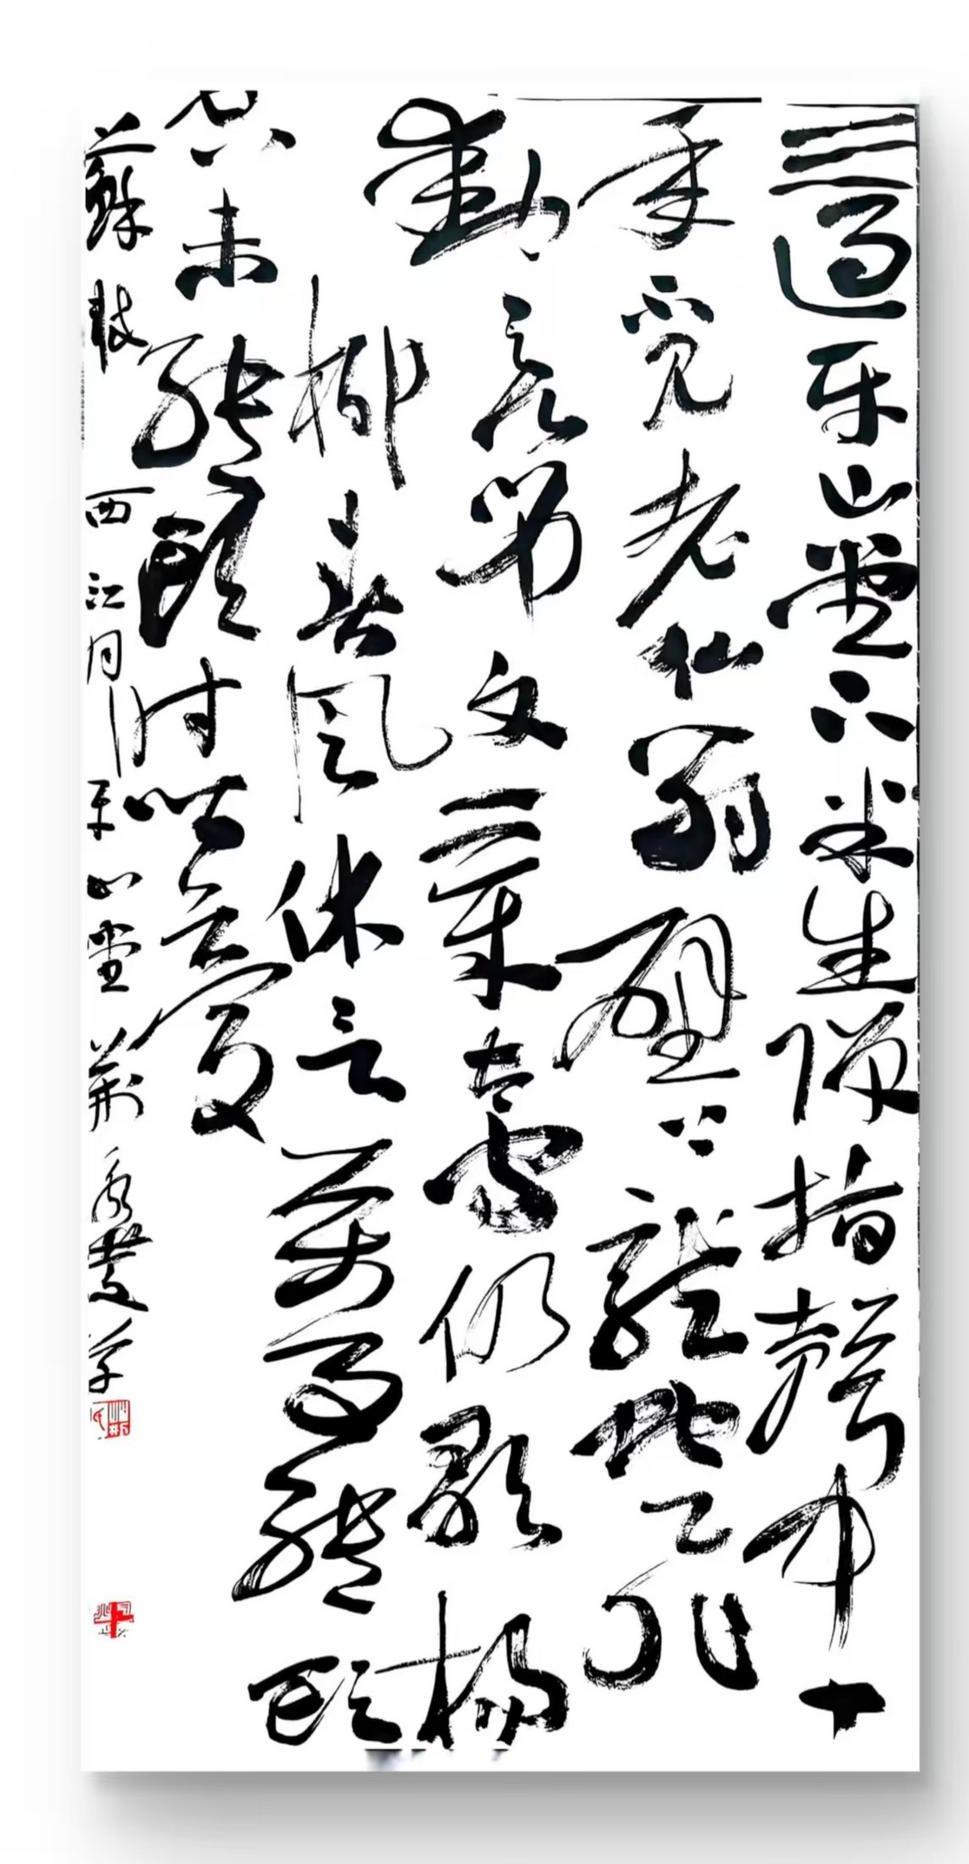 三過平山堂下半生彈指聲中十
年不見老仙翁壁上龍蛇飛
動欲弔文章太守仍歌楊
柳春風休言萬事轉頭
空未轉頭時皆夢
蘇軾西江月平山堂